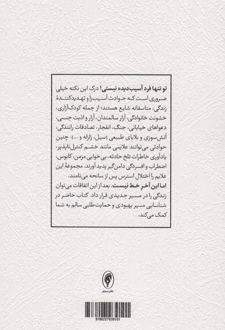 تو تنها فرد آسیب‌دیده نیستی! درک این نکته خیلی
ضروری است که حوادث آسیب‌زا و تهدیدکنندهٔ
زندگی، متأسفانه شایع هستند؛ از جمله کودک‌آزاری،
خشونت خانوادگی، آزار سالمندان، آزار و اذیت جنسی،
دعواهای خیابانی، جنگ، انفجار، تصادفات رانندگی،
آتش‌سوزی و بلایای طبیعی (سیل، زلزله و ...). چنین
حوادثی می‌توانند علایمی مانند خشم کنترل‌ناپذیر،
یادآوری خاطرات تلخ حادثه، بی‌خوابی مزمن، کابوس،
اضطراب و افسردگی دامن‌گیر پدید آورند. مجموعهٔ این
علایم را اختلال استرس پس از سانحه می‌نامند.
اما این آخر خط نیست. بعد از این اتفاقات می‌توان
زندگی را در مسیر جدیدی قرار داد. کتاب حاضر در
شناسایی مسیر بهبودی و حمایت‌طلبی سالم به شما
کمک می‌کند.